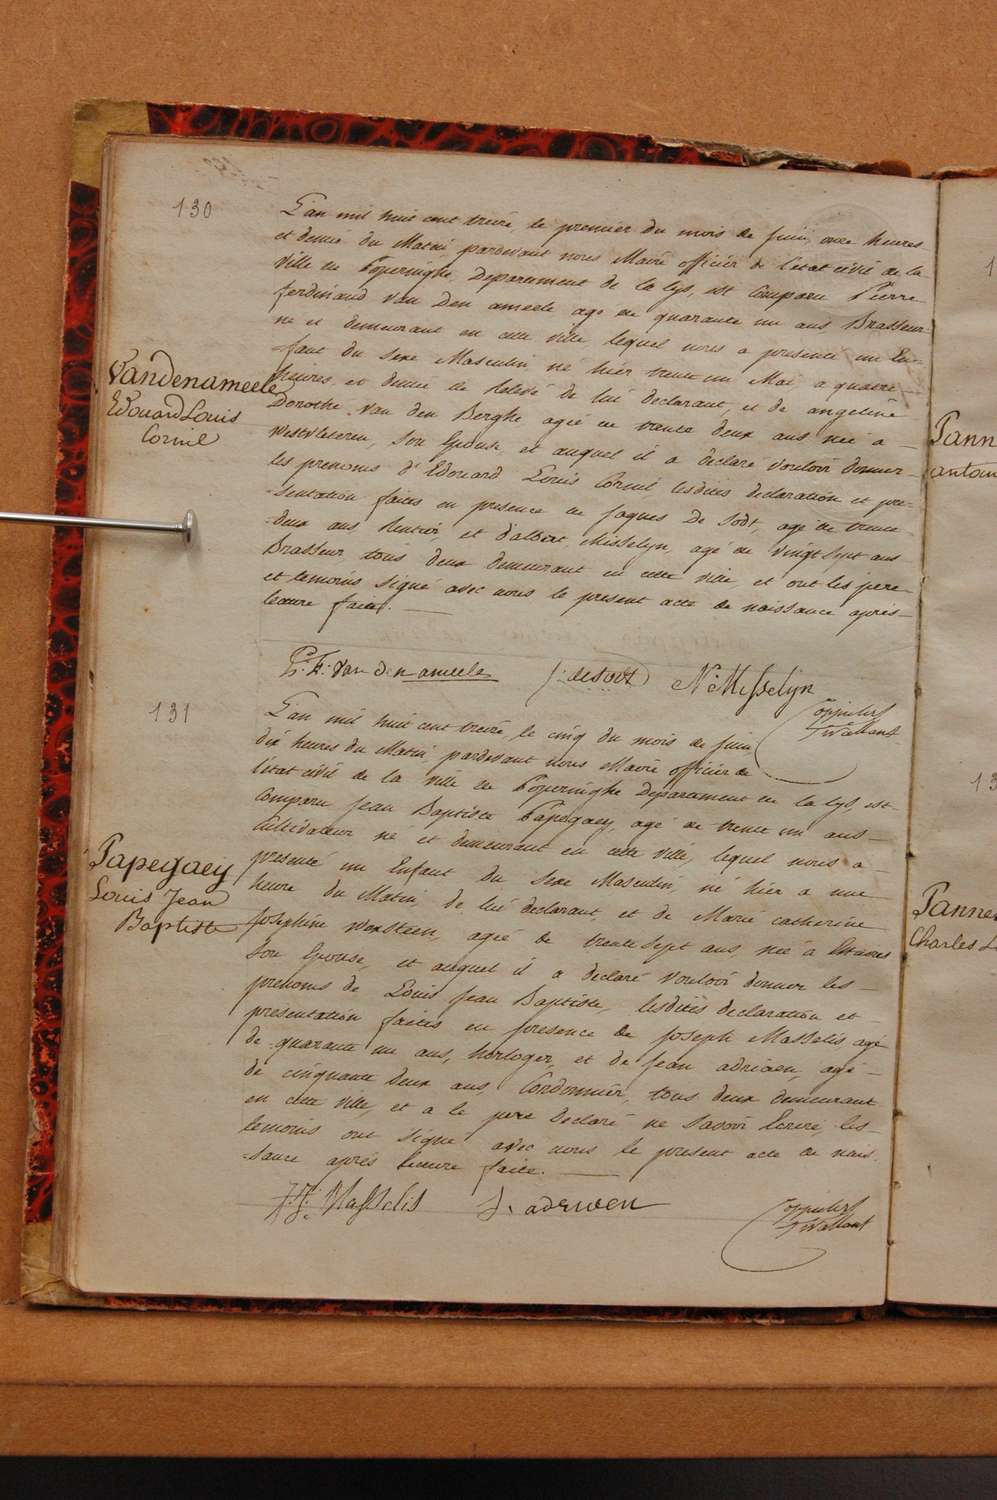 130
L'an mil huit cent treize, le premier du mois de Juin, onze heures
et demie du Matin, pardevant nous Maire officier de l'état civil de la
Ville de Poperinghe, Departement de la Lys, est Comparu Pierre
ferdinand Van Den ameele agé de quarante un ans Brasseur
né et demeurant en cette ville lequel nous a presenté un En-
-fant du sexe Masculin né hier trente un Mai, a quatre
heures et demie de relevé de lui declarant, et de angeline
Dorothé Van den Berghe agée de trente deux ans née a
Westvleteren, Son Epouse, et auquel il a declaré vouloir donner
les prenoms d'Edouard Louis Cornil lesdites declaration et pre-
-sentation faites en presence de Jaques De Sodt, agé de trente
deux ans Rentier, et d'albert Misselyn, agé de vingt sept ans
Brasseur, tous deux demeurant en cette ville et ont les pere
et temoins signé avec nous le present acte de naissance après
lecture faite.
Vandenameele
Edouard Louis
Cornil
P. F. Van den ameele J: deSodt N: Misselyn
131
L'an mil huit cent treize, le cinq du mois de Juin
dix heures du Matin, pardevant nous Maire officier de
l'état civil de la ville de Poperinghe departement de la Lys, est
Comparu Jean Baptiste Papegaey, agé de trente un ans
Cultivateur né et demeurant en cette ville, lequel nous a
presenté un Enfant du sexe Masculin, né hier a une
heure du Matin, de lui declarant, et de Marie catherine
Josephine agée de trente sept ans, née à
Son Epouse, et auquel il a declaré vouloir donner les
prenoms de Louis Jean Baptiste, lesdites declaration et
presentation faites en presence de Joseph Masselis agé
de quarante un ans, horloger, et de Jean adriaen, agé
de cinquante deux ans, Cordonnier, tous deux demeurant
en cette ville, et a le pere declaré ne Savoir Ecrire, les
temoins ont signé avec nous le present acte de nais-
-sance après lecture faite.
Papegaey
Louis Jean
Baptiste
J. Masselis J. adriaen
Pann
antoin
Panne
Charles L